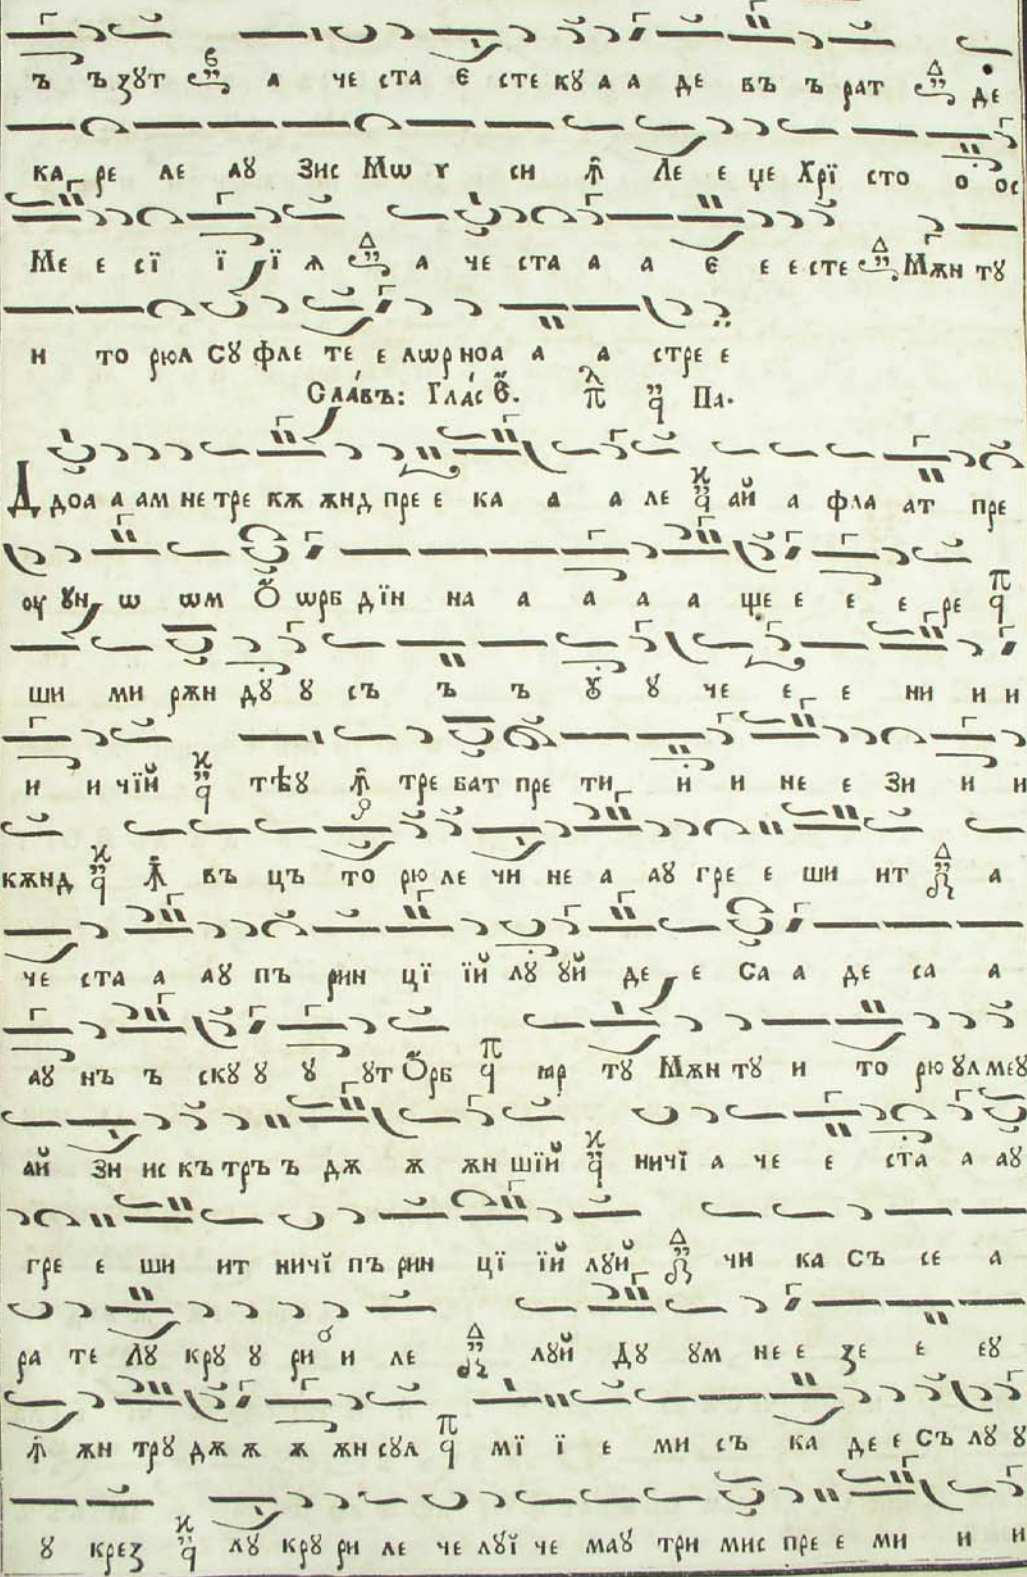 ъ ъзꙋт а че ста є сте кꙋ а а де въ ъ рат де
ка ре ле аꙋ зис Мѡ ѵ си ꙟ҆ Ле е це Хрї сто о ос
Ме е сї ї ї ѧ а че ста а а є е е сте Мѫн тꙋ
и то рюл Сꙋ фле те́ е лѡр ноа а а стре е
Сла́въ: Гла́с в҃. Па.
Д доа а ам не тре кѫ ѫнд пре е ка а а ле ай а фла ат пре
оу ꙋн ѡ ѡм Ѻ ѡрб дїн на а а а а ще е е е ре
ши ми рѫн дꙋ ꙋ съ ъ ъ ꙋ ꙋ че е е ни и и
и и чїй тѣꙋ ꙟ҆ тре бат пре ти и и не е зи и и
кѫнд ꙟ҆ въ цъ то рю ле чи не а аꙋ гре е ши ит а
че ста а аꙋ пъ рин цї їй лꙋ ꙋй де е Са а де са а
аꙋ нъ ъ скꙋ ꙋ ꙋ ꙋт Ѻрб ꙗр тꙋ Мѫн тꙋ и то рю ꙋл меꙋ
ай зи ис къ тръ ъ дѫ ѫ ѫн шїй ничї а че е ста а аꙋ
гре е ши ит ничї пъ рин цї їй лꙋй чи ка съ се а
ра те лꙋ крꙋ ꙋ ри и ле лꙋй Дꙋ ꙋм не е зе е еꙋ
ꙟ҆ ѫн трꙋ дѫ ѫ ѫ ѫн сꙋл мї ї е ми съ ка де е съ лꙋ ꙋ
ꙋ крез лꙋ крꙋ ри ле че лꙋї че маꙋ три мис пре е ми и и